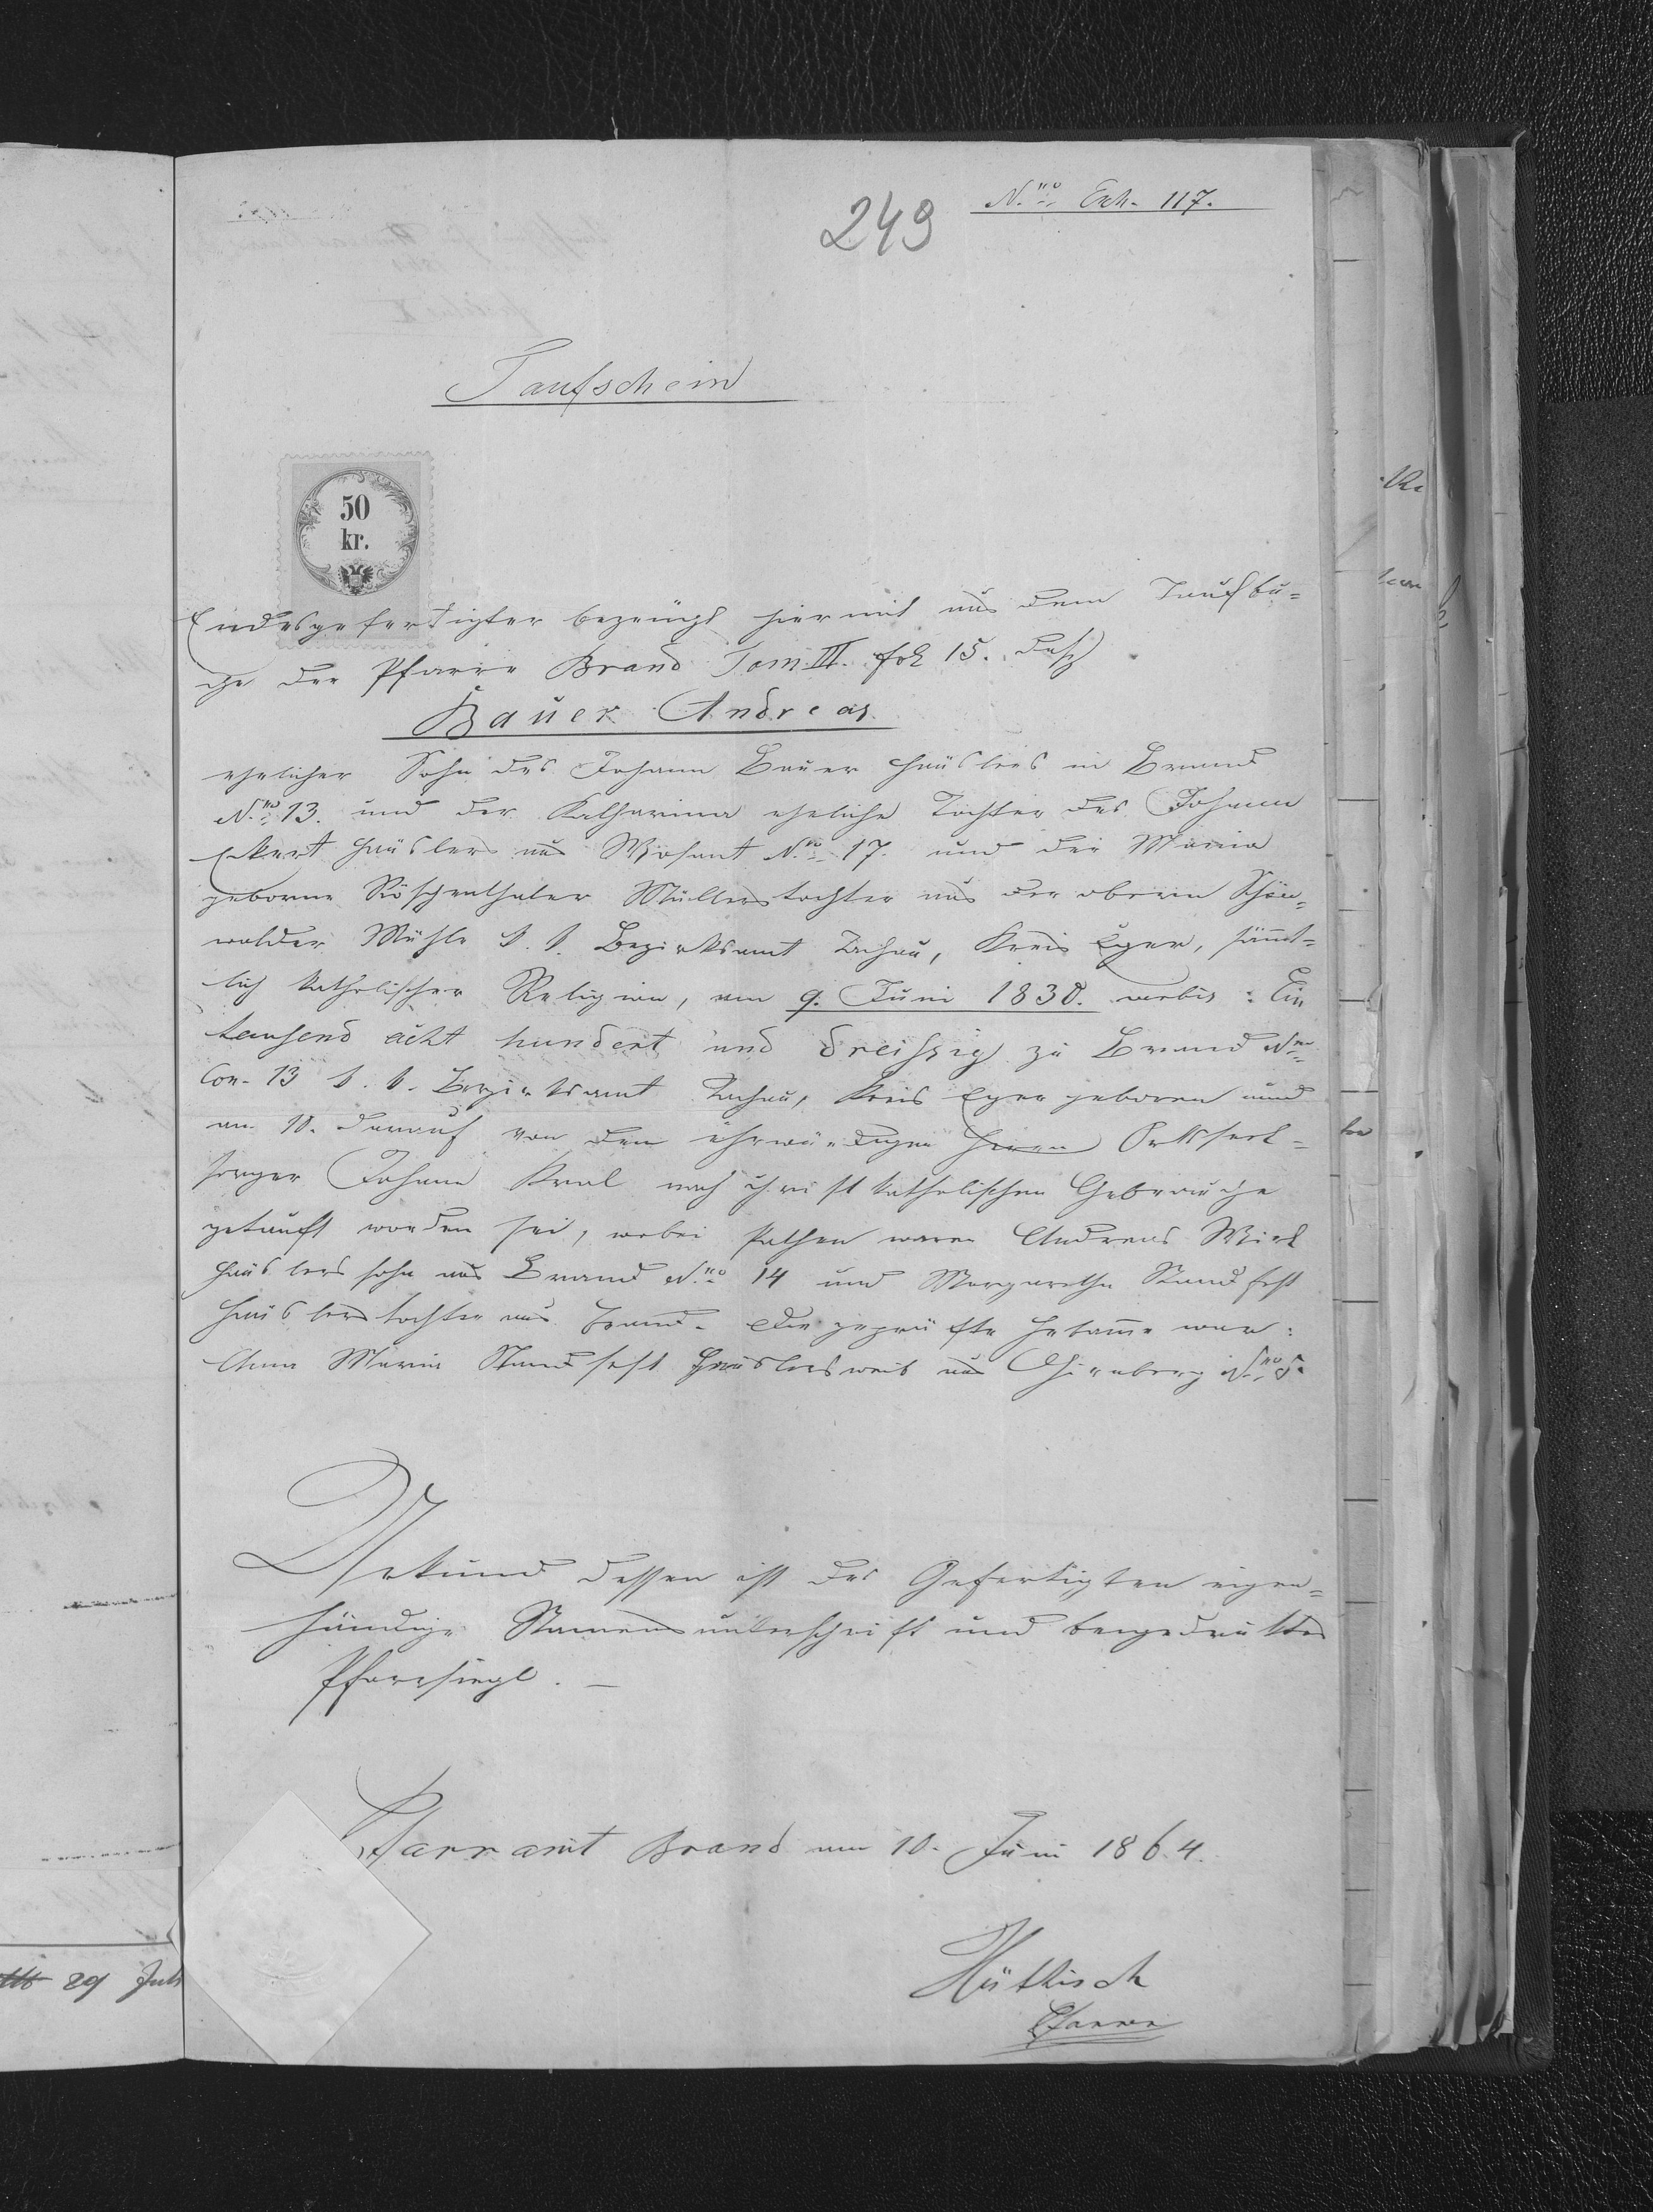 249
N.ro Exh. 117.
Taufschein
50
kr.
Endesgefertigter bezeugt hiermit aus dem Taufbu-
che der Pfarre Brand Tom III. fol 15. daß
Bauer Andreas
ehelicher Sohn des Johann Bauer Häuslers in Brand
N.ro 13. und der Katharina eheliche Tochter des Johann
Eckert Häuslers aus Wosant N.ro 17. und der Maria
geborne Röschenthaler Müllerstochter aus der oberen Schön-
walder Mühle k. k. Bezirksamt Tachau, Kreis Eger, sämt-
lich katholischer Religion, am 9. Juni 1830. verbis: Ein
tausend acht hundert und dreißig zu Brand Nro
Con. 13 k. k. Bezirksamt Tachau, Kreis Eger geboren und
am 10. darauf von dem ehrwürdigen Herrn Ortsseel-
sorger Johann Kral nach christkatholischen Gebrauche
getauft worden sei, wobei Pathen waren Andreas Wirt
Häuslerssohn aus Brand N.ro 14 und Margaretha Standfest
Häuslerstochter aus Brand. Die geprüfte Hebamme war:
Anna Maria Standfest Häuslersweib aus N.ro 5.
Urkund dessen ist des Gefertigten eigen-
händige Namensunterschrift und beygedrucktes
Pfarrsiegl. —
Pfarramt Brand am 10. Juni 1864.
Hüttisch
Pfarrer
29 Juli